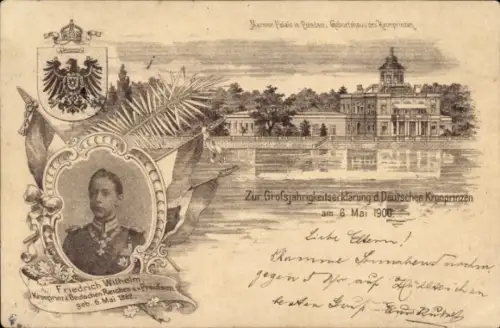 Marmor Palais in Potsdam, Geburtshaus des Kronprinzen.
Zur Großjährigkeitserklärung d. Deutschen Kronprinzen
am 6. Mai 1900.
Friedrich Wilhelm
Kronprinz d. Deutschen Reiches u. v. Preußen
geb. 6. Mai 1882.
Liebe Eltern!
Komme Sonnabend
gegen Uhr auf
besten Gruß